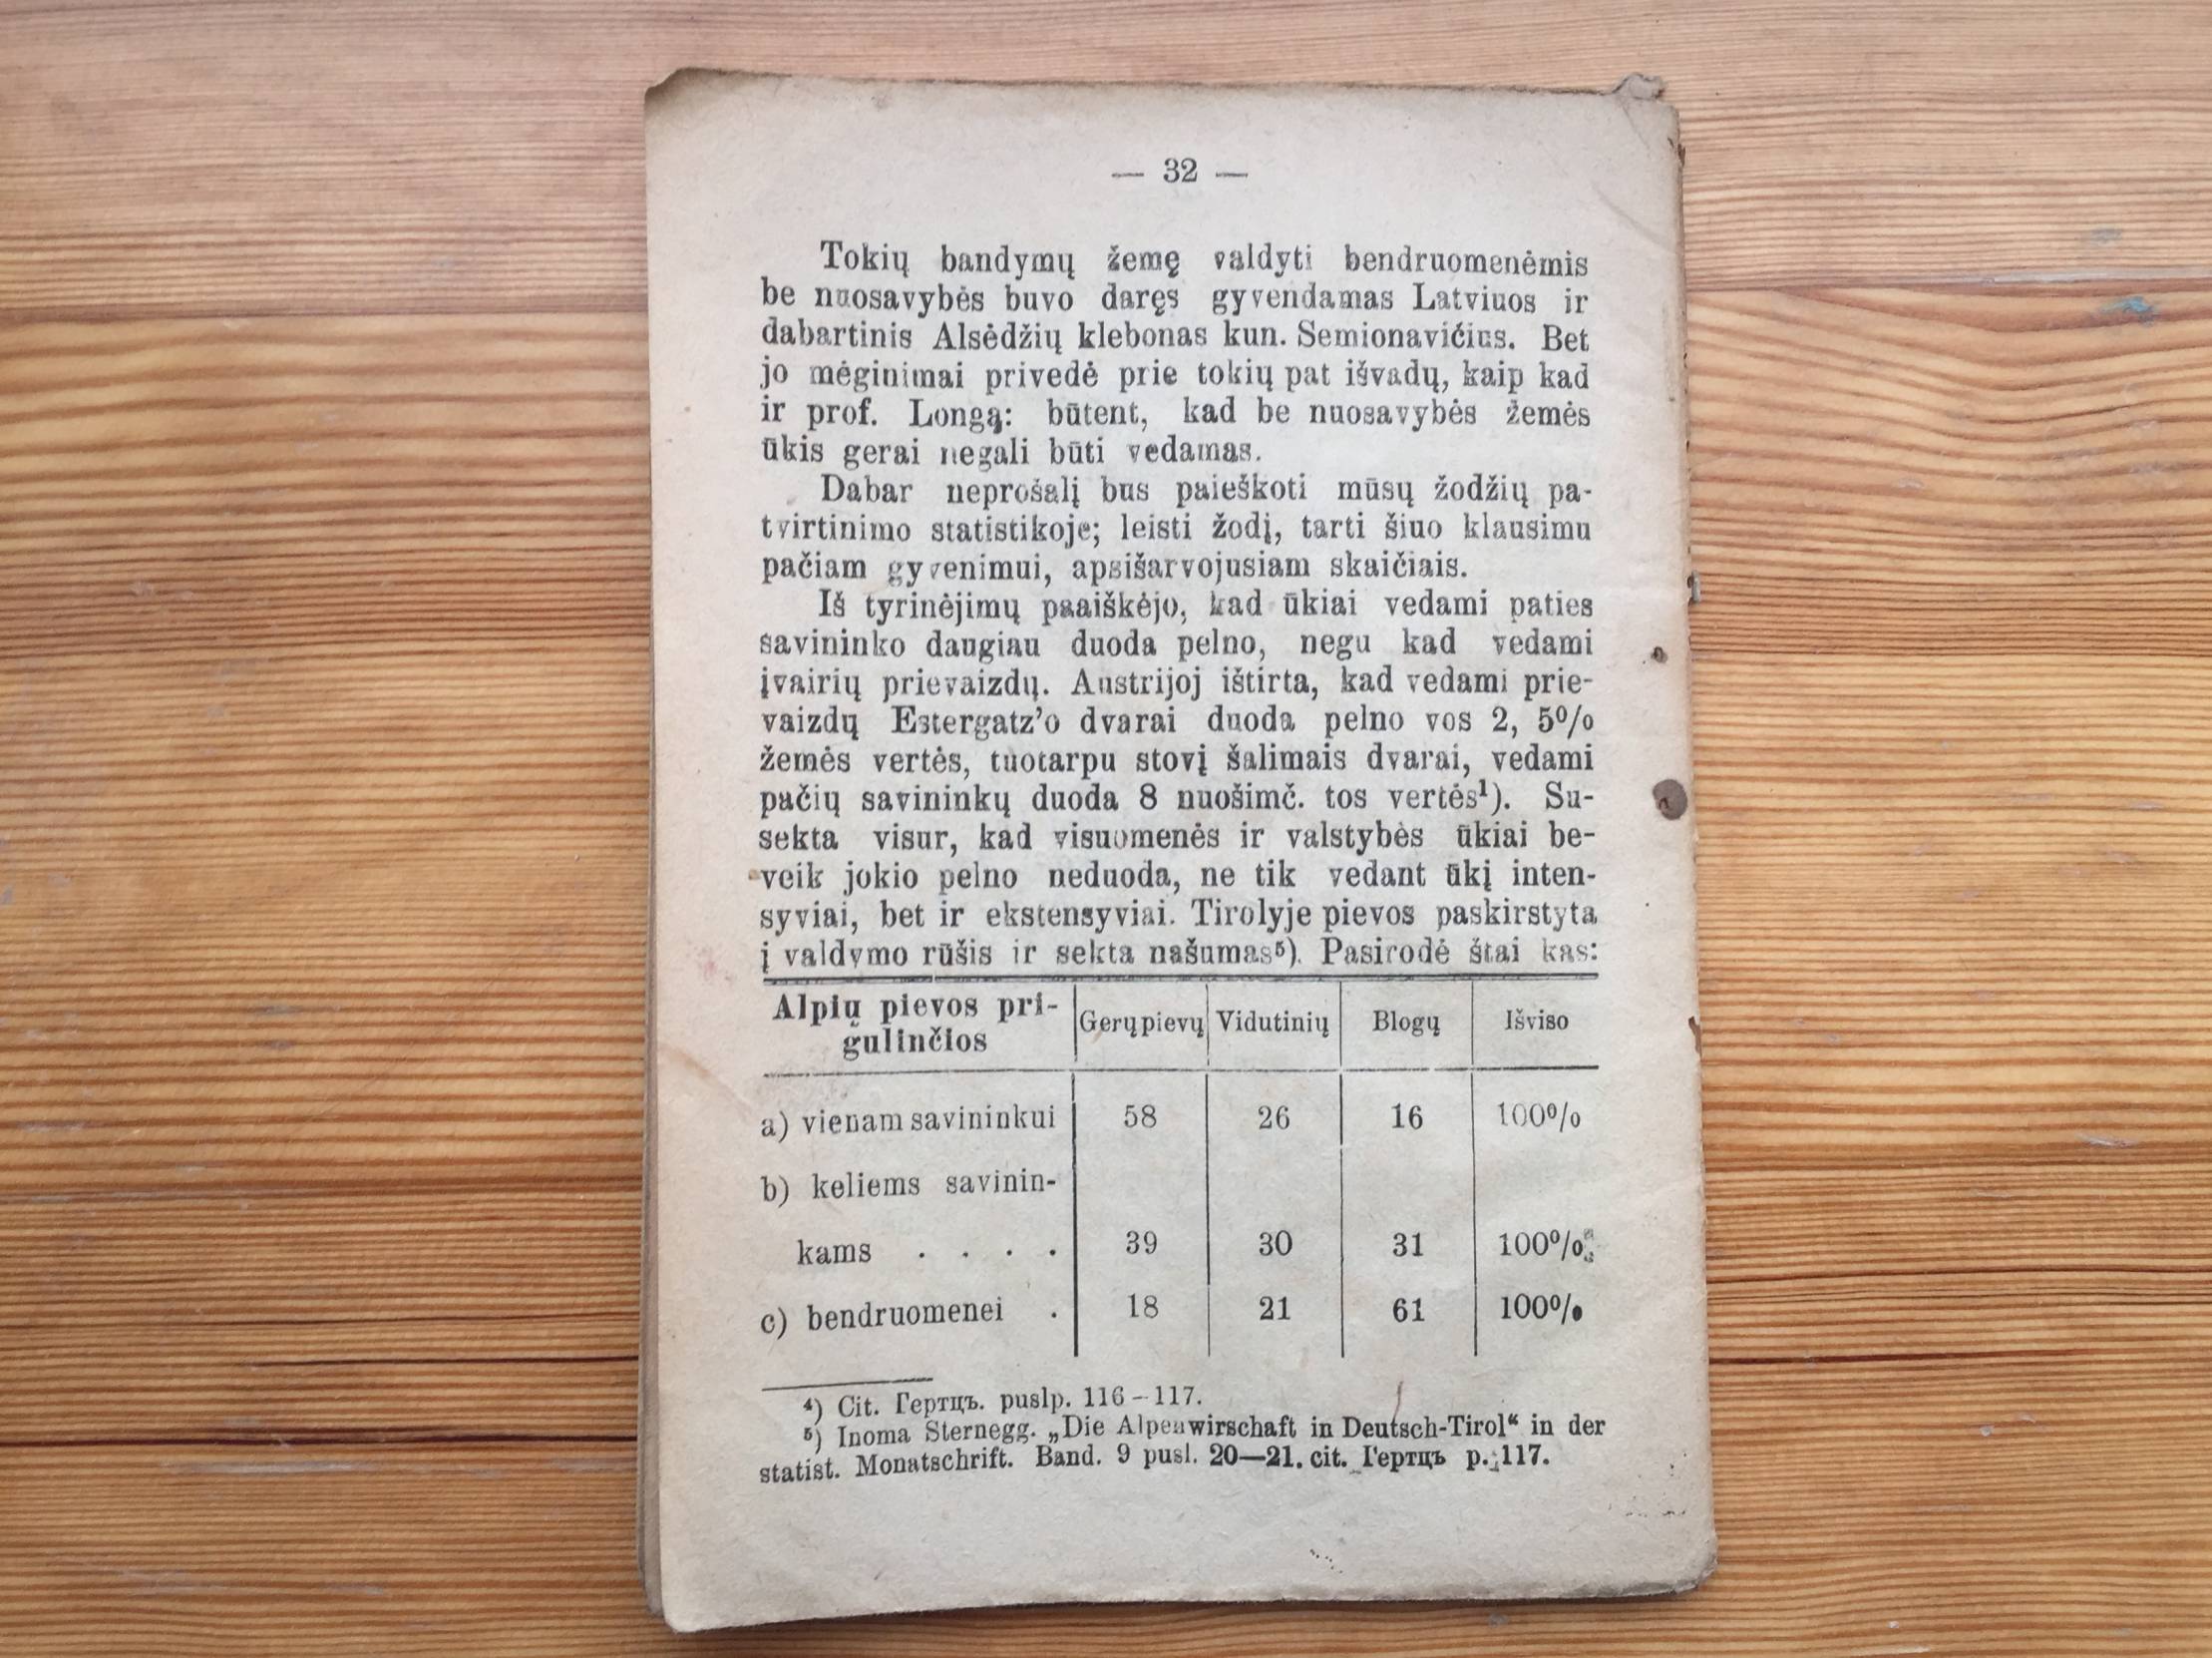 — 32 —
Tokių bandymų žemę valdyti bendruomenėmis
be nuosavybės buvo daręs gyvendamas Latviuos ir
dabartinis Alsėdžių klebonas kun. Semionavičius. Bet
jo mėginimai privedė prie tokių pat išvadų, kaip kad
ir prof. Longą: būtent, kad be nuosavybės žemės
ūkis gerai negali būti vedamas.
Dabar neprošalį bus paieškoti mūsų žodžių pa-
tvirtinimo statistikoje; leisti žodį, tarti šiuo klausimu
pačiam gyvenimui, apsišarvojusiam skaičiais.
Iš tyrinėjimų paaiškėjo, kad ūkiai vedami paties
savininko daugiau duoda pelno, negu kad vedami
įvairių prievaizdų. Austrijoj ištirta, kad vedami prie-
vaizdų Estergatz’o dvarai duoda pelno vos 2, 5%
žemės vertės, tuotarpu stovį šalimais dvarai, vedami
pačių savininkų duoda 8 nuošimč. tos vertės¹). Su-
sekta visur, kad visuomenės ir valstybės ūkiai be-
veik jokio pelno neduoda, ne tik vedant ūkį inten-
syviai, bet ir ekstensyviai. Tirolyje pievos paskirstyta
į valdymo rūšis ir sekta našumas⁵). Pasirodė štai kas:
Alpių pievos pri-
gulinčios
Gerų pievų Vidutinių Blogų Išviso
a) vienam savininkui 58 26 16 100%
b) keliems savinin-
kams . . . . 39 30 31 100%
c) bendruomenei . 18 21 61 100%
⁴) Cit. Гертцъ. puslp. 116–117.
⁵) Inoma Sternegg. „Die Alpenwirschaft in Deutsch-Tirol“ in der
statist. Monatschrift. Band. 9 pusl. 20—21. cit. Гертцъ p. 117.